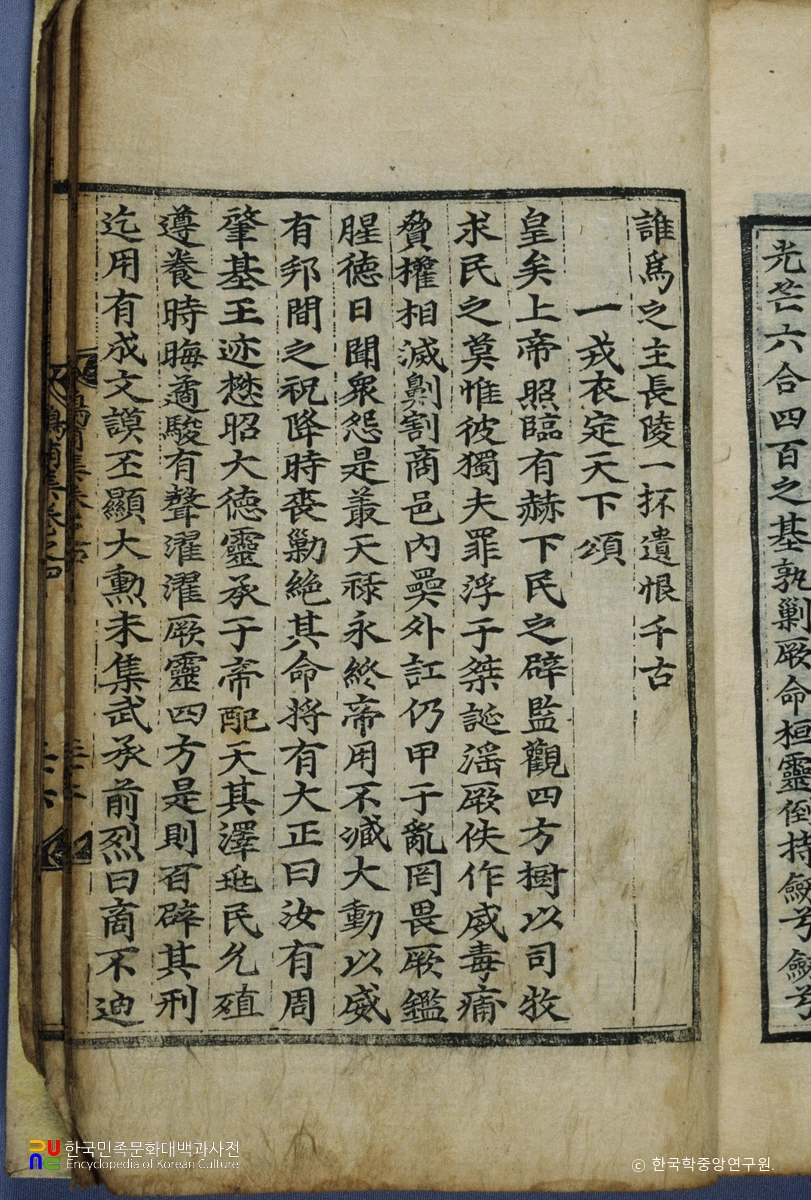 光芒六合四百之基孰剿厥命桓靈倒持劒兮劒兮
誰爲之主長陵一抔遺恨千古
一戎衣定天下頌
皇矣上帝照臨有赫下民之辟監觀四方樹以司牧
求民之莫惟彼獨夫罪浮于桀誕淫厥佚作威毒痡
賢擢相滅劓割商邑內奰外訌仍甲于亂罔畏厥鑑
腥德日聞衆怨是叢天祿永終帝用不臧大動以威
有邦間之祝降時喪勦絶其命將有大正曰汝有周
肇基王迹懋昭大德靈承于帝配天其澤迆民允殖
遵養時晦遹駿有聲濯濯厥靈四方是則百辟其刑
迄用有成文謨丕顯大勳未集武承前烈曰商不迪
鳴集卷之四
한국민족문화대백과사전
Encyclopedia of Korean Culture
ⓒ 한국학중앙연구원.